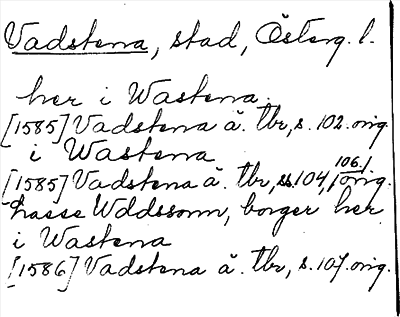 Vadstena, stad, Österg. l.
her i Wastena.
[1585] Vadstena ä. tbr, s. 102. orig.
i Wastena
[1585] Vadstena ä. tbr, ss. 104, 106. orig.
hasse Woldssonn, borger her
i Wastena
[1586] Vadstena ä. tbr, s. 107. orig.